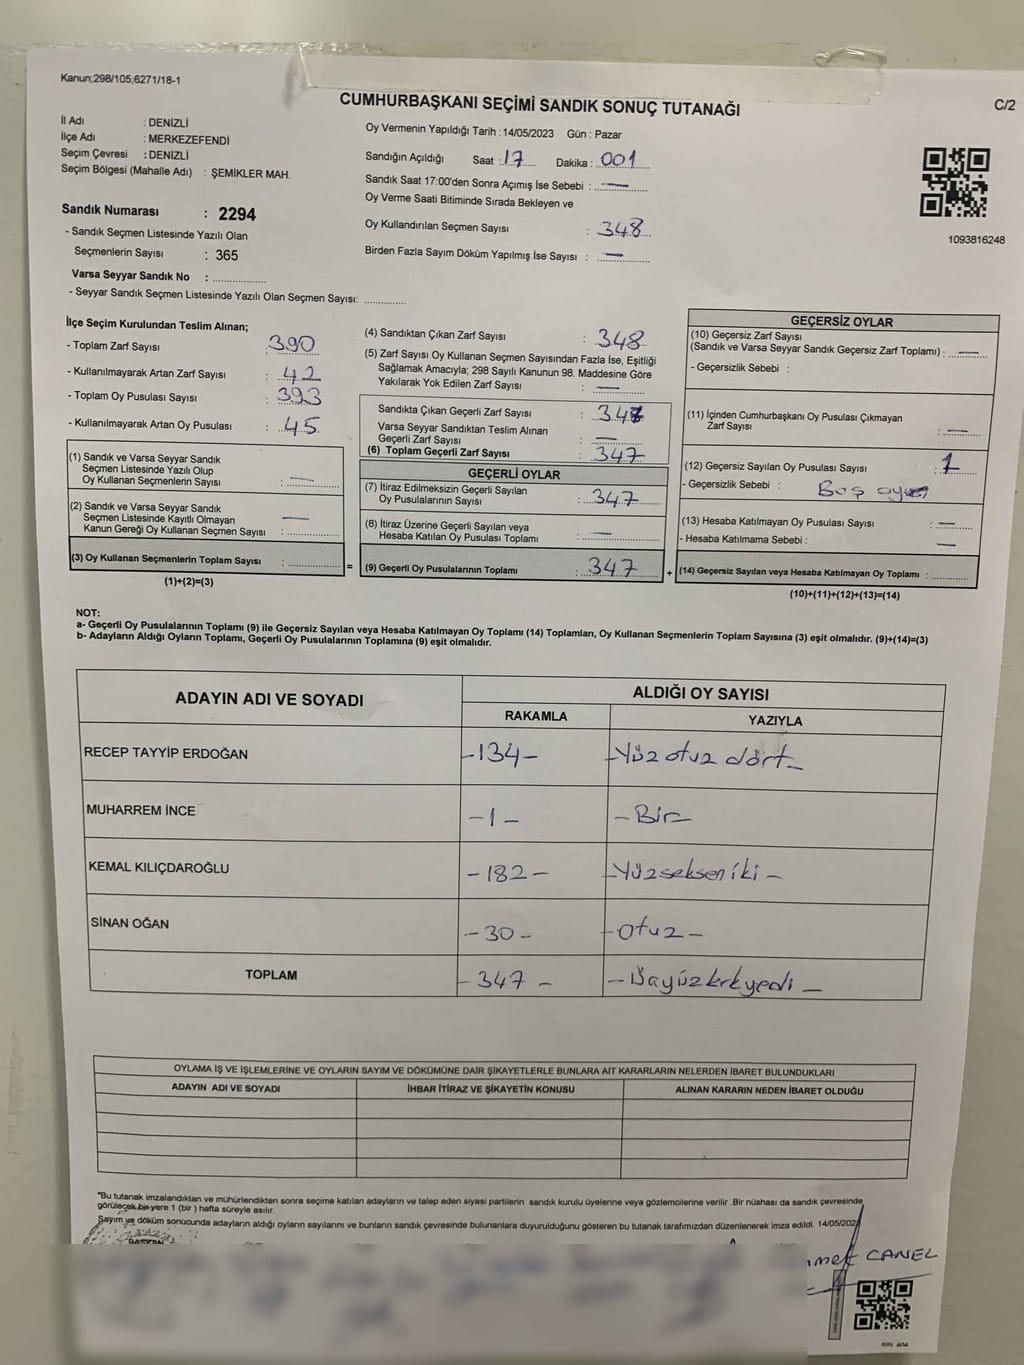 Kanun;298/105;6271/18-1
CUMHURBAŞKANI SEÇİMİ SANDIK SONUÇ TUTANAĞI
C/2
İl Adı : DENİZLİ
İlçe Adı : MERKEZEFENDİ
Seçim Çevresi : DENİZLİ
Seçim Bölgesi (Mahalle Adı) : ŞEMİKLER MAH.
Sandık Numarası : 2294
- Sandık Seçmen Listesinde Yazılı Olan
Seçmenlerin Sayısı : 365
Varsa Seyyar Sandık No :
- Seyyar Sandık Seçmen Listesinde Yazılı Olan Seçmen Sayısı:
Oy Vermenin Yapıldığı Tarih : 14/05/2023 Gün : Pazar
Sandığın Açıldığı Saat : 17 Dakika : 001
Sandık Saat 17:00'den Sonra Açımış İse Sebebi : —
Oy Verme Saati Bitiminde Sırada Bekleyen ve
Oy Kullandırılan Seçmen Sayısı : 348
Birden Fazla Sayım Döküm Yapılmış İse Sayısı : —
1093816248
İlçe Seçim Kurulundan Teslim Alınan;
- Toplam Zarf Sayısı : 390
- Kullanılmayarak Artan Zarf Sayısı : 42
- Toplam Oy Pusulası Sayısı : 393
- Kullanılmayarak Artan Oy Pusulası : 45
(1) Sandık ve Varsa Seyyar Sandık
Seçmen Listesinde Yazılı Olup
Oy Kullanan Seçmenlerin Sayısı : —
(2) Sandık ve Varsa Seyyar Sandık
Seçmen Listesinde Kayıtlı Olmayan
Kanun Gereği Oy Kullanan Seçmen Sayısı : —
(3) Oy Kullanan Seçmenlerin Toplam Sayısı :
(1)+(2)=(3)
=
(4) Sandıktan Çıkan Zarf Sayısı : 348
(5) Zarf Sayısı Oy Kullanan Seçmen Sayısından Fazla İse, Eşitliği
Sağlamak Amacıyla; 298 Sayılı Kanunun 98. Maddesine Göre
Yakılarak Yok Edilen Zarf Sayısı : —
Sandıkta Çıkan Geçerli Zarf Sayısı : 347
Varsa Seyyar Sandıktan Teslim Alınan
Geçerli Zarf Sayısı : —
(6) Toplam Geçerli Zarf Sayısı : 347
GEÇERLİ OYLAR
(7) İtiraz Edilmeksizin Geçerli Sayılan
Oy Pusulalarının Sayısı : 347
(8) İtiraz Üzerine Geçerli Sayılan veya
Hesaba Katılan Oy Pusulası Toplamı : —
(9) Geçerli Oy Pusulalarının Toplamı : 347
+
GEÇERSİZ OYLAR
(10) Geçersiz Zarf Sayısı
(Sandık ve Varsa Seyyar Sandık Geçersiz Zarf Toplamı) : —
- Geçersizlik Sebebi :
(11) İçinden Cumhurbaşkanı Oy Pusulası Çıkmayan
Zarf Sayısı : —
(12) Geçersiz Sayılan Oy Pusulası Sayısı : 1
- Geçersizlik Sebebi : Boş
(13) Hesaba Katılmayan Oy Pusulası Sayısı : —
- Hesaba Katılmama Sebebi : —
(14) Geçersiz Sayılan veya Hesaba Katılmayan Oy Toplamı :
(10)+(11)+(12)+(13)=(14)
NOT:
a- Geçerli Oy Pusulalarının Toplamı (9) ile Geçersiz Sayılan veya Hesaba Katılmayan Oy Toplamı (14) Toplamları, Oy Kullanan Seçmenlerin Toplam Sayısına (3) eşit olmalıdır. (9)+(14)=(3)
b- Adayların Aldığı Oyların Toplamı, Geçerli Oy Pusulalarının Toplamına (9) eşit olmalıdır.
ADAYIN ADI VE SOYADI
ALDIĞI OY SAYISI
RAKAMLA YAZIYLA
RECEP TAYYİP ERDOĞAN -134- -Yüz otuz dört-
MUHARREM İNCE -1- -Bir-
KEMAL KILIÇDAROĞLU -182- -Yüzseksen iki-
SİNAN OĞAN -30- -Otuz-
TOPLAM -347-
OYLAMA İŞ VE İŞLEMLERİNE VE OYLARIN SAYIM VE DÖKÜMÜNE DAİR ŞİKAYETLERLE BUNLARA AİT KARARLARIN NELERDEN İBARET BULUNDUKLARI
ADAYIN ADI VE SOYADI İHBAR İTİRAZ VE ŞİKAYETİN KONUSU ALINAN KARARIN NEDEN İBARET OLDUĞU
"Bu tutanak imzalandıktan ve mühürlendikten sonra seçime katılan adayların ve talep eden siyasi partilerin sandık kurulu üyelerine veya gözlemcilerine verilir .Bir nüshası da sandık çevresinde
görülecek bir yere 1 (bir ) hafta süreyle asılır.
Sayım ve döküm sonucunda adayların aldığı oyların sayılarını ve bunların sandık çevresinde bulunanlara duyurulduğunu gösteren bu tutanak tarafımızdan düzenlenerek imza edildi. 14/05/202
BAŞKAN
CANEL